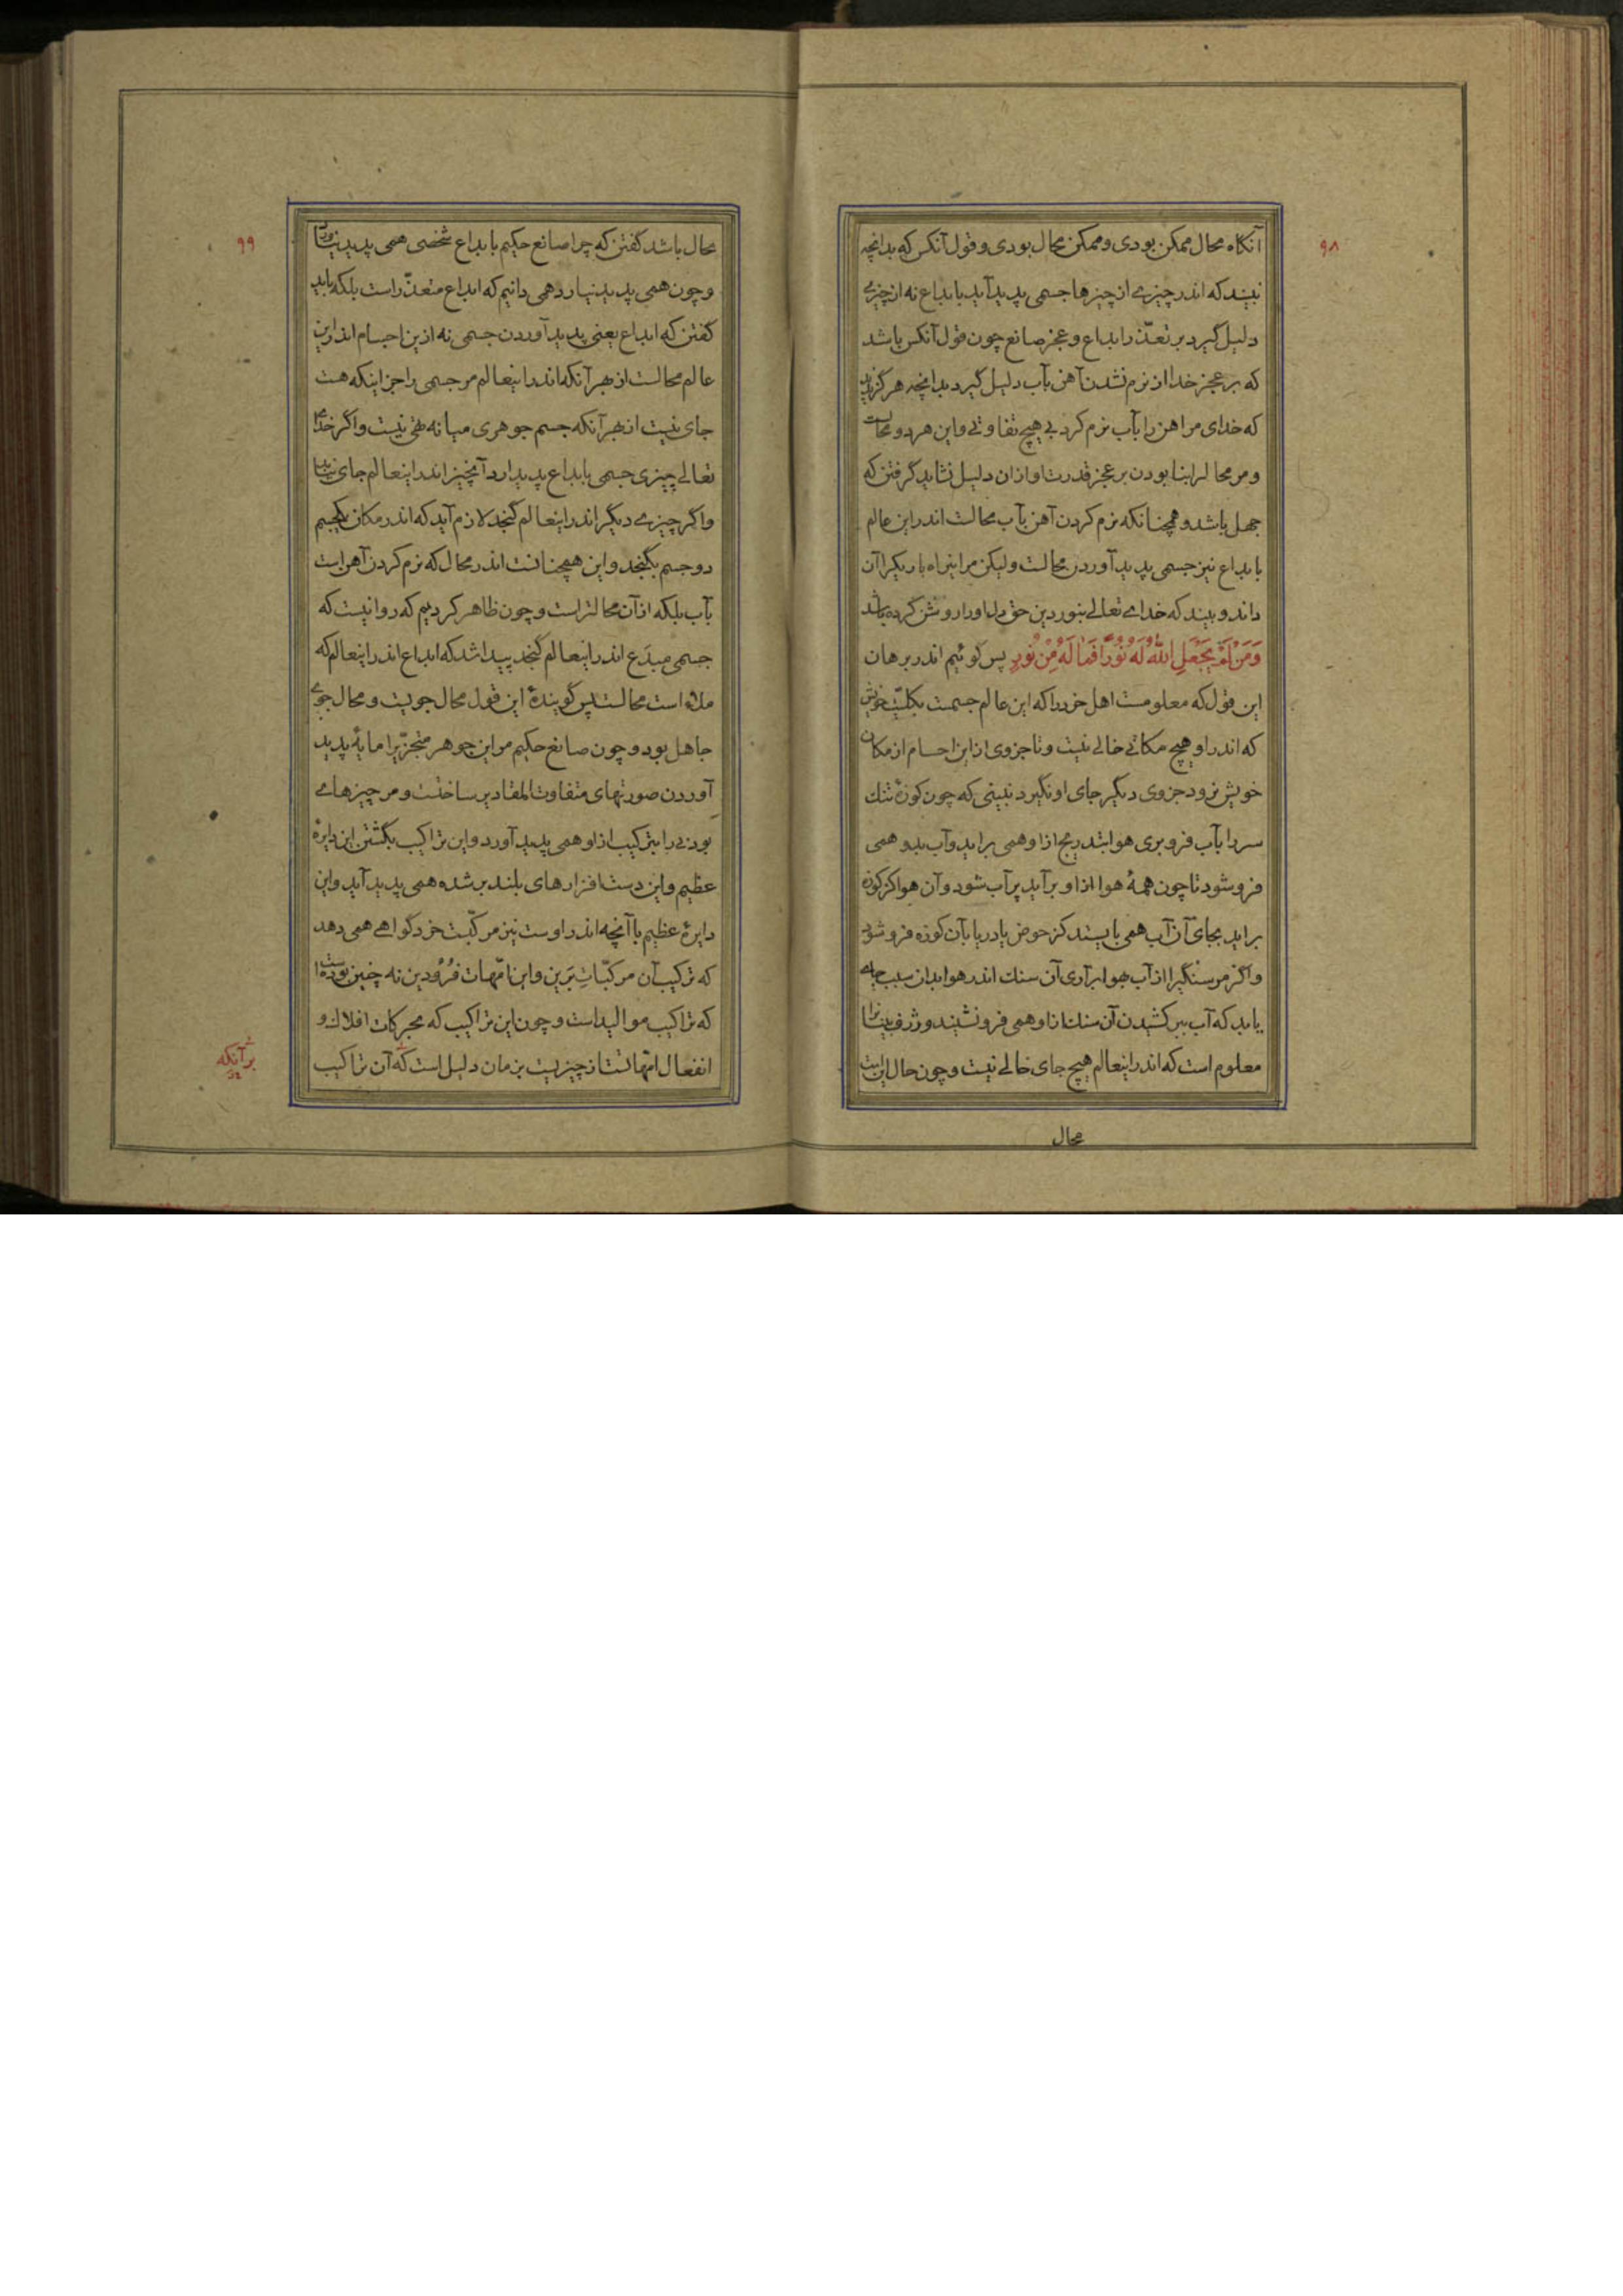 ۹۸
آنکاه محال ممکن بودی و ممکن محال بودی و قول آنکس که بدانچه
نبیند که اندر چیزے از چیزها جسمی پدید آید بابداع نه از چیزے
دلیل گیرد بر تعذّر ابداع و عجز صانع چون قول آنکس باشد
که بر عجز خدا از نرم نشدن آهن بآب دلیل گیرد بدانچه هرگز ندید
که خدای مر اهن را بآب نرم کرد بی هیچ تفاوتے و این هر دو محالست
و مر محالرا بنا بودن بر عجز قدرت او ازان دلیل نشاید گرفتن که
جهل باشد و همچنانکه نرم کردن آهن بآب محالست اندر این عالم
بابداع نیز جسمی پدید آوردن محالست ولیکن مر اینراه باریکرا آن
داند و بیند که خداے تعالے بنور دین حق دل اورا روشن کرده باشد
وَمَنْ لَمْ يَجْعَلِ اللّٰهُ لَهُ نُوْرًا فَمَا لَهُ مِنْ نُورٍ پس گوئیم اندر برهان
این قول که معلومست اهل خرد را که این عالم جسمست بکلیّت خویش
که اندر او هیچ مکانے خالے نیست و تا جزوی از این اجسام از مکان
خویش نرود جزوی دیگر جای او نگیرد نبینی که چون کوزهٔ تنك
سر را بآب فرو بری هوا بتدریج ازا و همی براید و آب بدو همی
فرو شود تا چون همهٔ هوا ازا و برآید پر آب شود و آن هوا کز کوزه
براید بجای آن آب همی بایستد کز حوض یا دریا بآن کوزه فرو شود
و اگر مر سنگیرا از آب بهوا برآری آن سنك اندر هوا بدان سبب جاے
یابد که آب ببر کشیدن آن سنك ازا و همی فرو نشیند و ژرف بینانرا
معلوم است که اندر اینعالم هیچ جای خالے نیست و چون حال اینست
محال
۹۹
محال باشد گفتن که چرا صانع حکیم بابداع شخصی همی پدید نیاورد
و چون همی پدید نیارد همی دانیم که ابداع متعذّر است بلکه باید
گفتن که ابداع یعنی پدید آوردن جسمی نه ازین اجسام اندر این
عالم محالست از بهر آنکه اندر اینعالم مر جسمی را جز اینکه هست
جای نیست از بهر آنکه جسم جوهری میانه تهی نیست و اگر خدای
تعالے چیزی جسمی بابداع پدید ارد آنچیز اندر اینعالم جای نیابد
و اگر چیزے دیگر اندر اینعالم گنجد لازم آید که اندر مکان یکجسم
دو جسم بگنجد و این همچنانست اندر محال که نرم کردن آهن است
بآب بلکه از آن محالتر است و چون ظاهر کردیم که روا نیست که
جسمی مبدَع اندر اینعالم گنجد پیدا شد که ابداع اندر اینعالم که
ملاء است محالست پس گویندهٔ این قول محال جویست و محال جوے
جاهل بود و چون صانع حکیم مر این جوهر متجزّیرا مایهٔ پدید
آوردن صورتهای متفاوت المقادیر ساخت و مر چیزهاے
بودنے را بترکیب ازا و همی پدید آورد و این تراکیب بگشتن این دایرهٔ
عظیم و این دست افزارهای بلند بر شده همی پدید آید و این
دایرهٔ عظیم با آنچه اندر اوست نیز مرکبّست خرد گواهے همی دهد
که ترکیب آن مرکّباتِ بَرین و این امّهات فُرُودین نه چنین بوده است
که تراکیب موالید است و چون این تراکیب که بحرکات افلاك و
انفعال امّهاتست از چیزیست بزمان دلیل است که آن تراکیب
بر آنکه